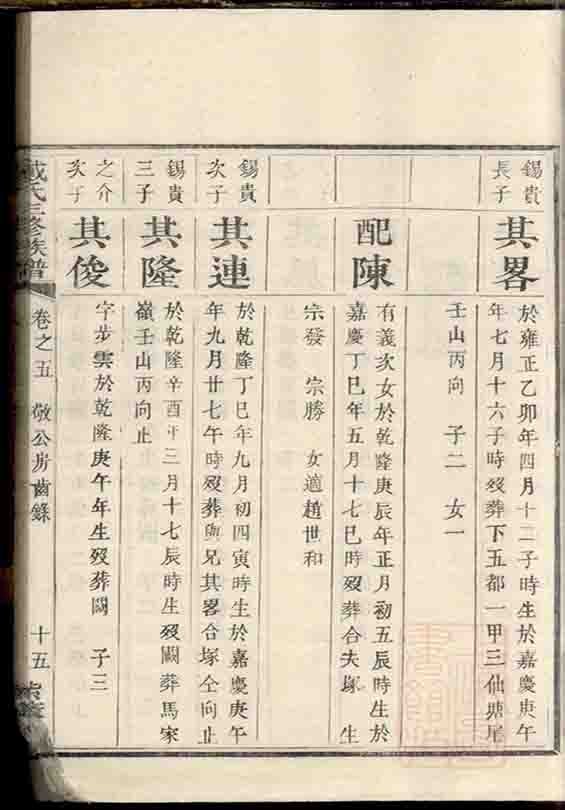 錫貴
長子
其畧
於雍正乙卯年四月十二子時生於嘉慶庚午
年七月十六子時歿葬下五都一甲三仙塘尾
壬山丙向　子二　女一
配陳
有義次女於乾隆庚辰年正月初五辰時生於
嘉慶丁巳年五月十七巳時歿葬合夫塚　生
宗發　宗勝　女適趙世和
錫貴
次子
其連
於乾隆丁巳年九月初四寅時生於嘉慶庚午
年九月廿七午時歿葬與兄其畧合塚仝向止
錫貴
三子
其隆
於乾隆辛酉年三月十七辰時生歿闕葬馬家
嶺壬山丙向止
之介
次子
其俊
字步雲於乾隆庚午年生歿葬闕　子三
戴氏三修族譜
卷之五　敬公房齒錄
十五